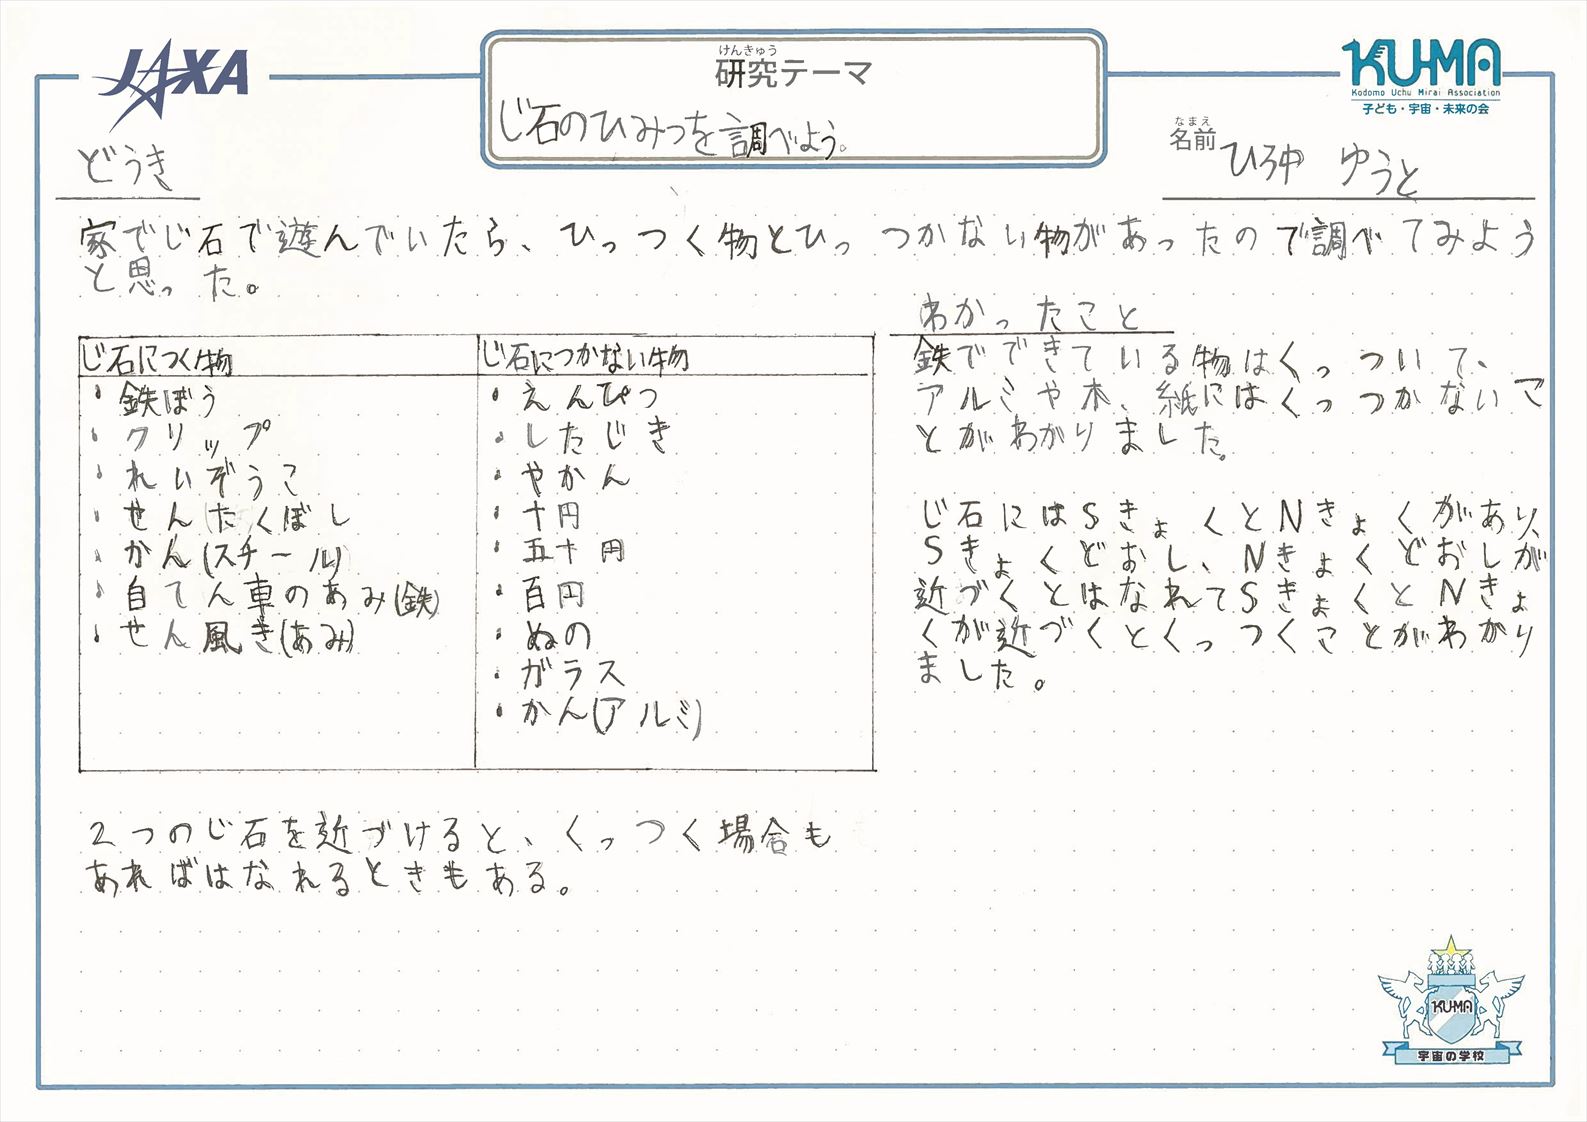 JAXA
けんきゅう
研究テーマ
じ石のひみつを調べよう。
KU-MA
Kodomo Uchu Mirai Association
子ども・宇宙・未来の会
なまえ
名前
ひろ中 ゆうと
どうき
家でじ石で遊んでいたら、ひっつく物とひっつかない物があったので調べてみよう
と思った。
じ石につく物
・鉄ぼう
・クリップ
・れいぞうこ
・せんたくばし
・かん(スチール)
・自てん車のあみ(鉄)
・せん風き(あみ)
じ石につかない物
・えんぴつ
・したじき
・やかん
・十円
・五十円
・百円
・ぬの
・ガラス
・かん(アルミ)
2つのじ石を近づけると、くっつく場合も
あればはなれるときもある。
わかったこと
鉄でできている物はくっついて、
アルミや木、紙にはくっつかないこ
とがわかりました。
じ石にはSきょくとNきょくがあり、
Sきょくどおし、Nきょくどおしが
近づくとはなれてSきょくとNきょ
くが近づくとくっつくことがわかり
ました。
KU-MA
宇宙の学校